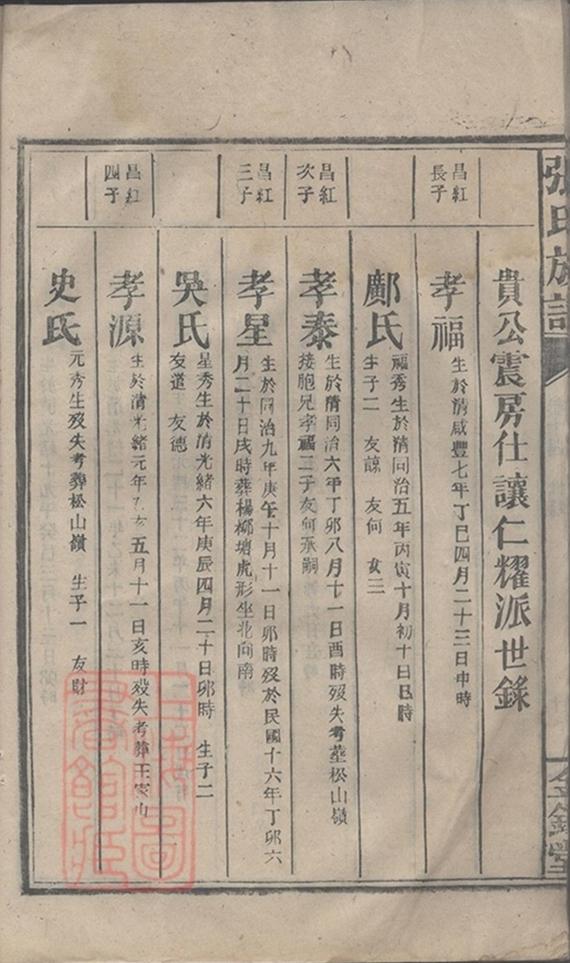 張氏族譜
金鑑堂
貴公震房仕讓仁耀派世錄
昌紅
長子
孝福
生於清咸豐七年丁巳四月二十三日申時
鄺氏
福秀生於清同治五年丙寅十月初十日巳時
生子二 友諒 友何
昌紅
次子
孝泰
生於清同治六年丁卯八月十一日酉時歿失考塟松山嶺
接胞兄孝福二子友何承嗣
昌紅
三子
孝星
生於同治九年庚午十月十一日卯時歿於民國十六年丁卯六
月二十日戌時葬楊柳塘虎形坐北向南
吳氏
星秀生於清光緒六年庚辰四月二十日卯時 生子二
友道 友德
昌紅
四子
孝源
生於清光緒元年乙亥五月十一日亥時殁失考葬王家山
史氏
元秀生歿失考葬松山嶺 生子一 友財